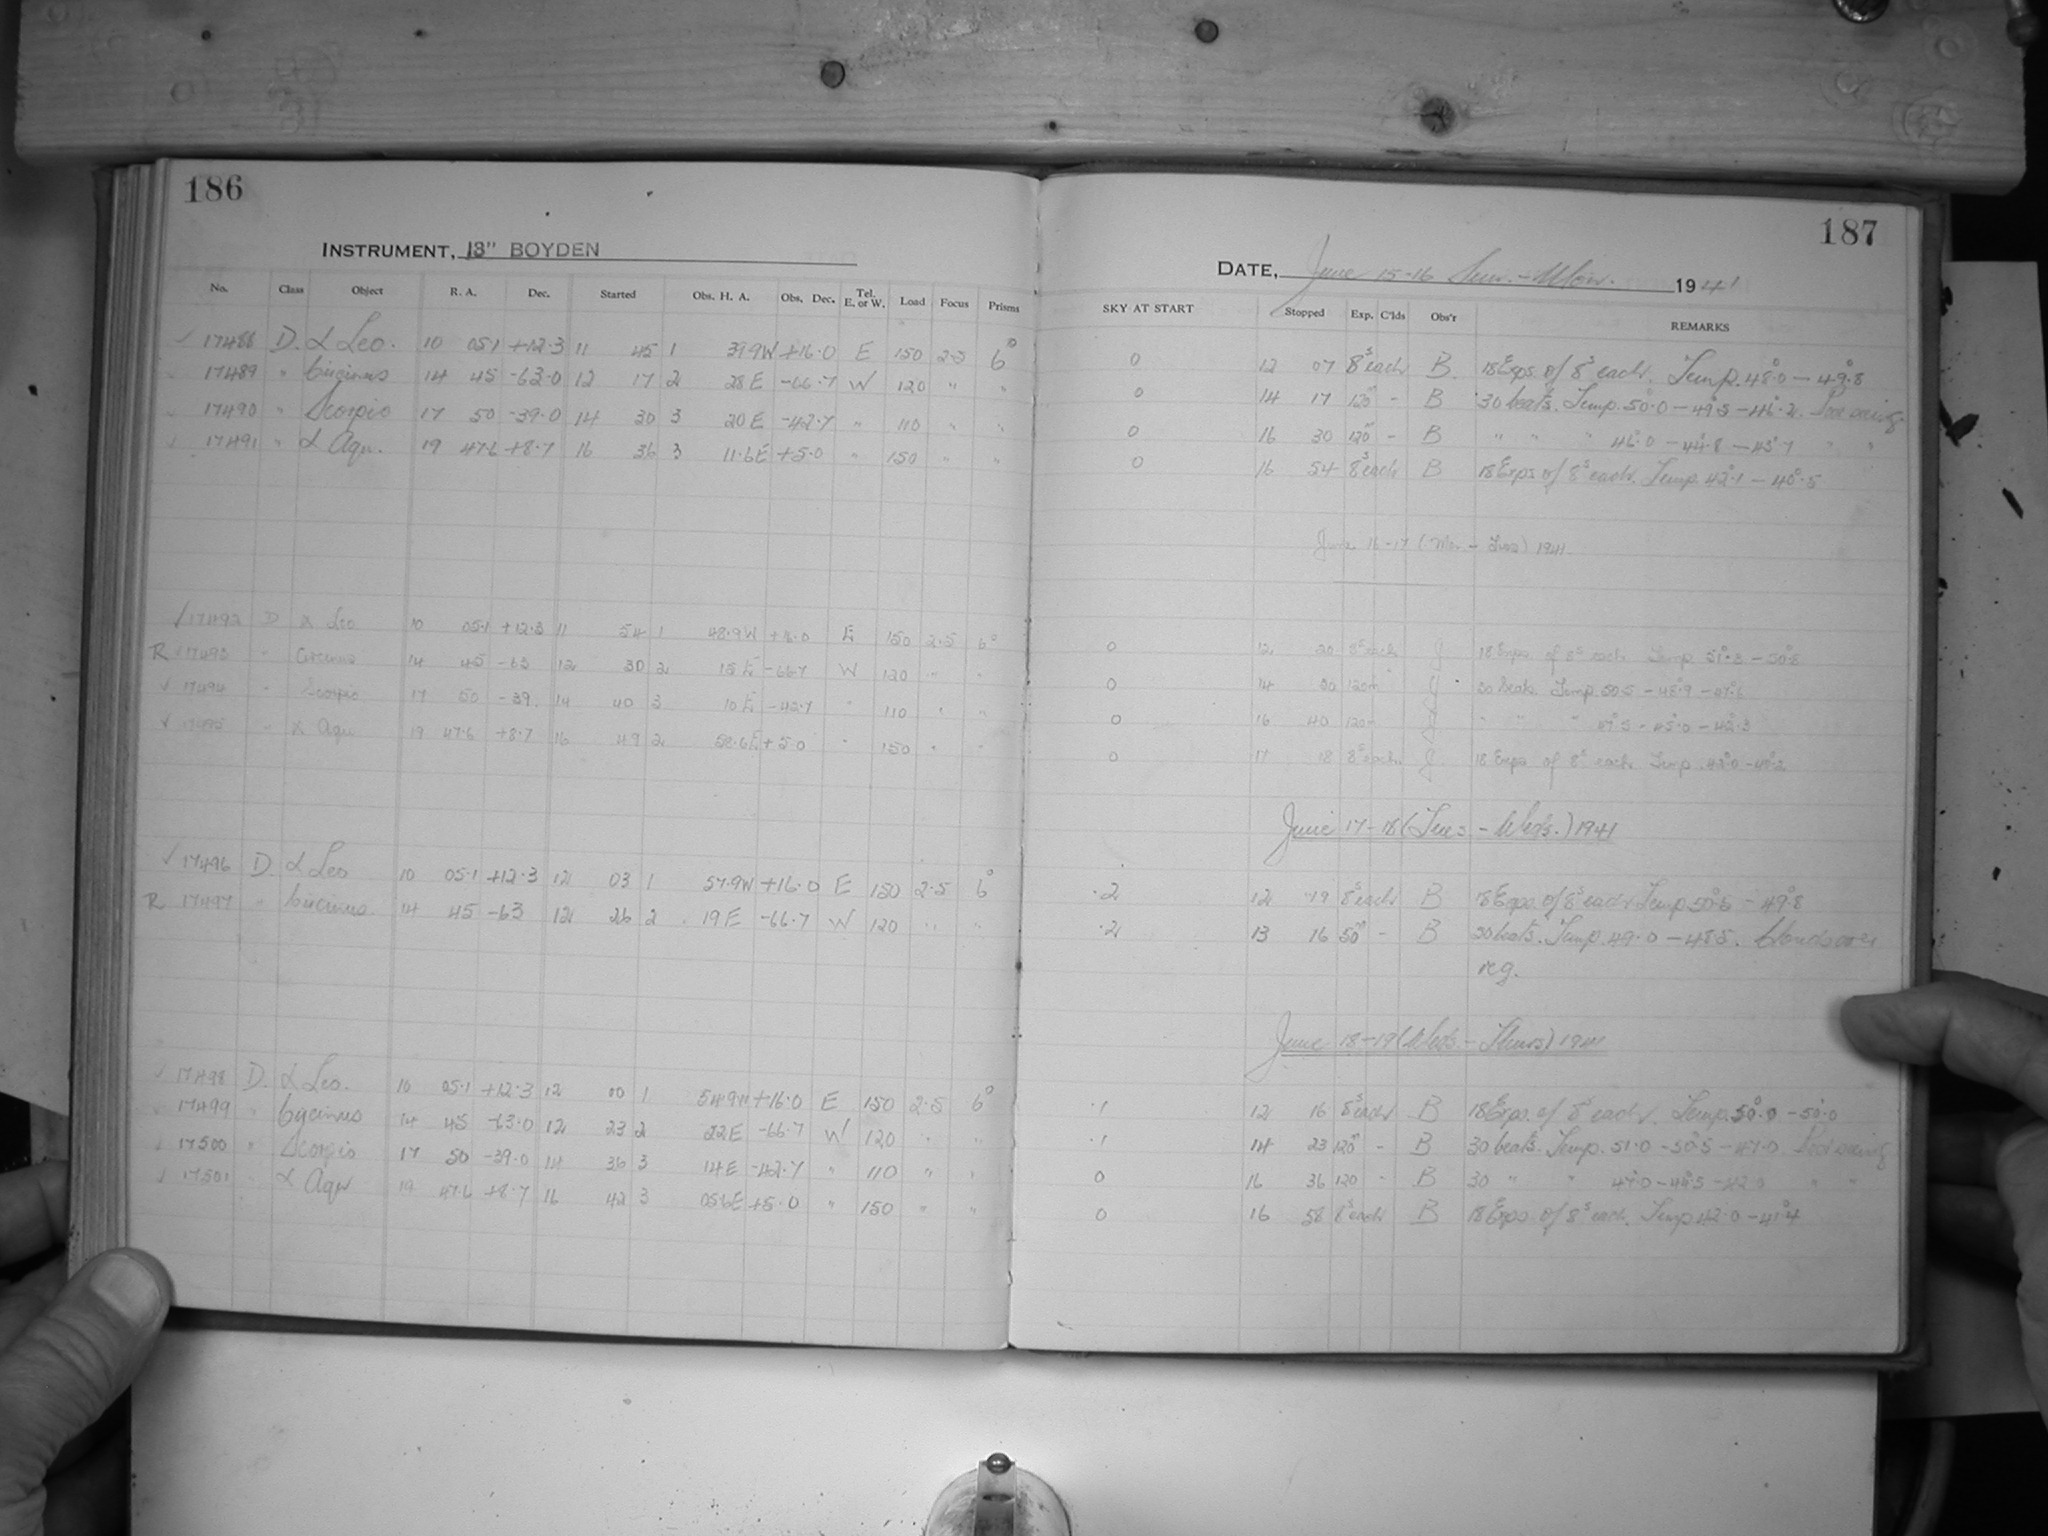 186
INSTRUMENT, 13" BOYDEN
No. Class Object R. A. Dec. Started Obs. H. A. Obs. Dec. Tel. E. or W. Load Focus Prisms
✓ 17488 D. α Leo. 10 05.1 +12.3 11 45 1 39.9W +16.0 E 150 2.5 6°
17489 " Circinus 14 45 -63.0 12 17 2 28E -66.7 W 120 " "
17490 " Scorpio 17 50 -39.0 14 30 3 20E -42.7 " 110 " "
17491 " α Aqu. 19 47.6 +8.7 16 36 3 11.6E +5.0 " 150 " "
✓ 17492 D α Leo 10 05.1 +12.3 11 54 1 48.9W +16.0 E 150 2.5 6°
R 17493 " Circinus 14 45 -63 12 30 2 15E -66.7 W 120 " "
✓ 17494 " Scorpio 17 50 -39. 14 40 3 10E -42.7 " 110 " "
✓ 17495 " α Aqu. 19 47.6 +8.7 16 49 2 58.6E +5.0 " 150 " "
✓ 17496 D. α Leo 10 05.1 +12.3 12 03 1 57.9W +16.0 E 150 2.5 6°
R 17497 " Circinus 14 45 -63 12 26 2 19E -66.7 W 120 " "
✓ 17498 D. α Leo. 10 05.1 +12.3 12 00 1 54.9W +16.0 E 150 2.5 6°
17499 " Circinus 14 45 -63.0 12 23 2 22E -66.7 W 120 " "
17500 " Scorpio 17 50 -39.0 14 36 3 14E -42.7 " 110 " "
✓ 17501 " α Aqu 19 47.6 +8.7 16 42 3 05.6E +5.0 " 150 " "
187
DATE, June 15-16 Sun.-Mon. 1941
SKY AT START Stopped Exp. C'lds Obs'r REMARKS
0 12 07 8s each B. 18 Exps. of 8s each. Temp. 48.0 — 49.8
0 14 17 120m - B 30 beats. Temp. 50.0 — 49.5 — 46.2. Poor seeing
0 16 30 120m - B " " " 46.0 — 44.8 — 43.7 " "
0 16 54 8s each B 18 Exps. of 8s each. Temp. 42.1 — 40.5
June 16-17 (Mon - Tues) 1941
0 12 20 8s each J 18 Exps. of 8s each Temp 51.3 - 50.8
0 14 30 120m J 30 beats. Temp. 50.5 - 48.9 - 47.6
0 16 40 120m J " " " 47.5 - 45.0 - 42.3
0 17 18 8s each J 18 Exps of 8s each Temp. 42.0 - 40.2
June 17-18 (Tues. - Weds.) 1941
.2 12 19 8s each B 18 Exps. of 8s each Temp 50.5 - 49.8
.2 13 16 50m - B 30 beats. Temp. 49.0 - 48.5. Clouds over
reg.
June 18-19 (Weds. - Thurs) 1941
.1 12 16 8s each B 18 Exps. of 8s each. Temp. 50.0 - 50.0
.1 14 23 120m - B 30 beats. Temp. 51.0 - 50.5 - 47.0 Poor seeing
0 16 36 120 - B 30 " " 47.0 - 44.5 - 42.0 " "
0 16 58 8s each B 18 Exps. of 8s each. Temp 42.0 - 41.4